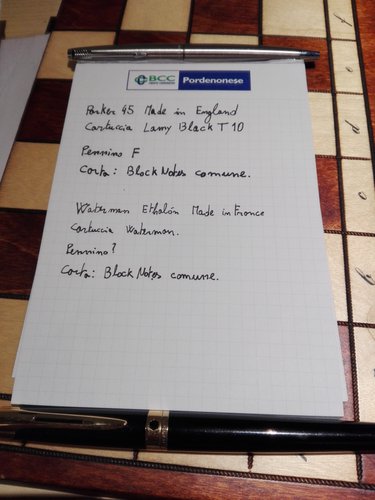 BCC Pordenonese
Parker 45 Made in England
Cartuccia Lamy Black T10
Pennino F
Carta: Block Notes comune.
Waterman Ethalón Made in France
Cartuccia Waterman.
Pennino?
Carta: Block Notes comune.